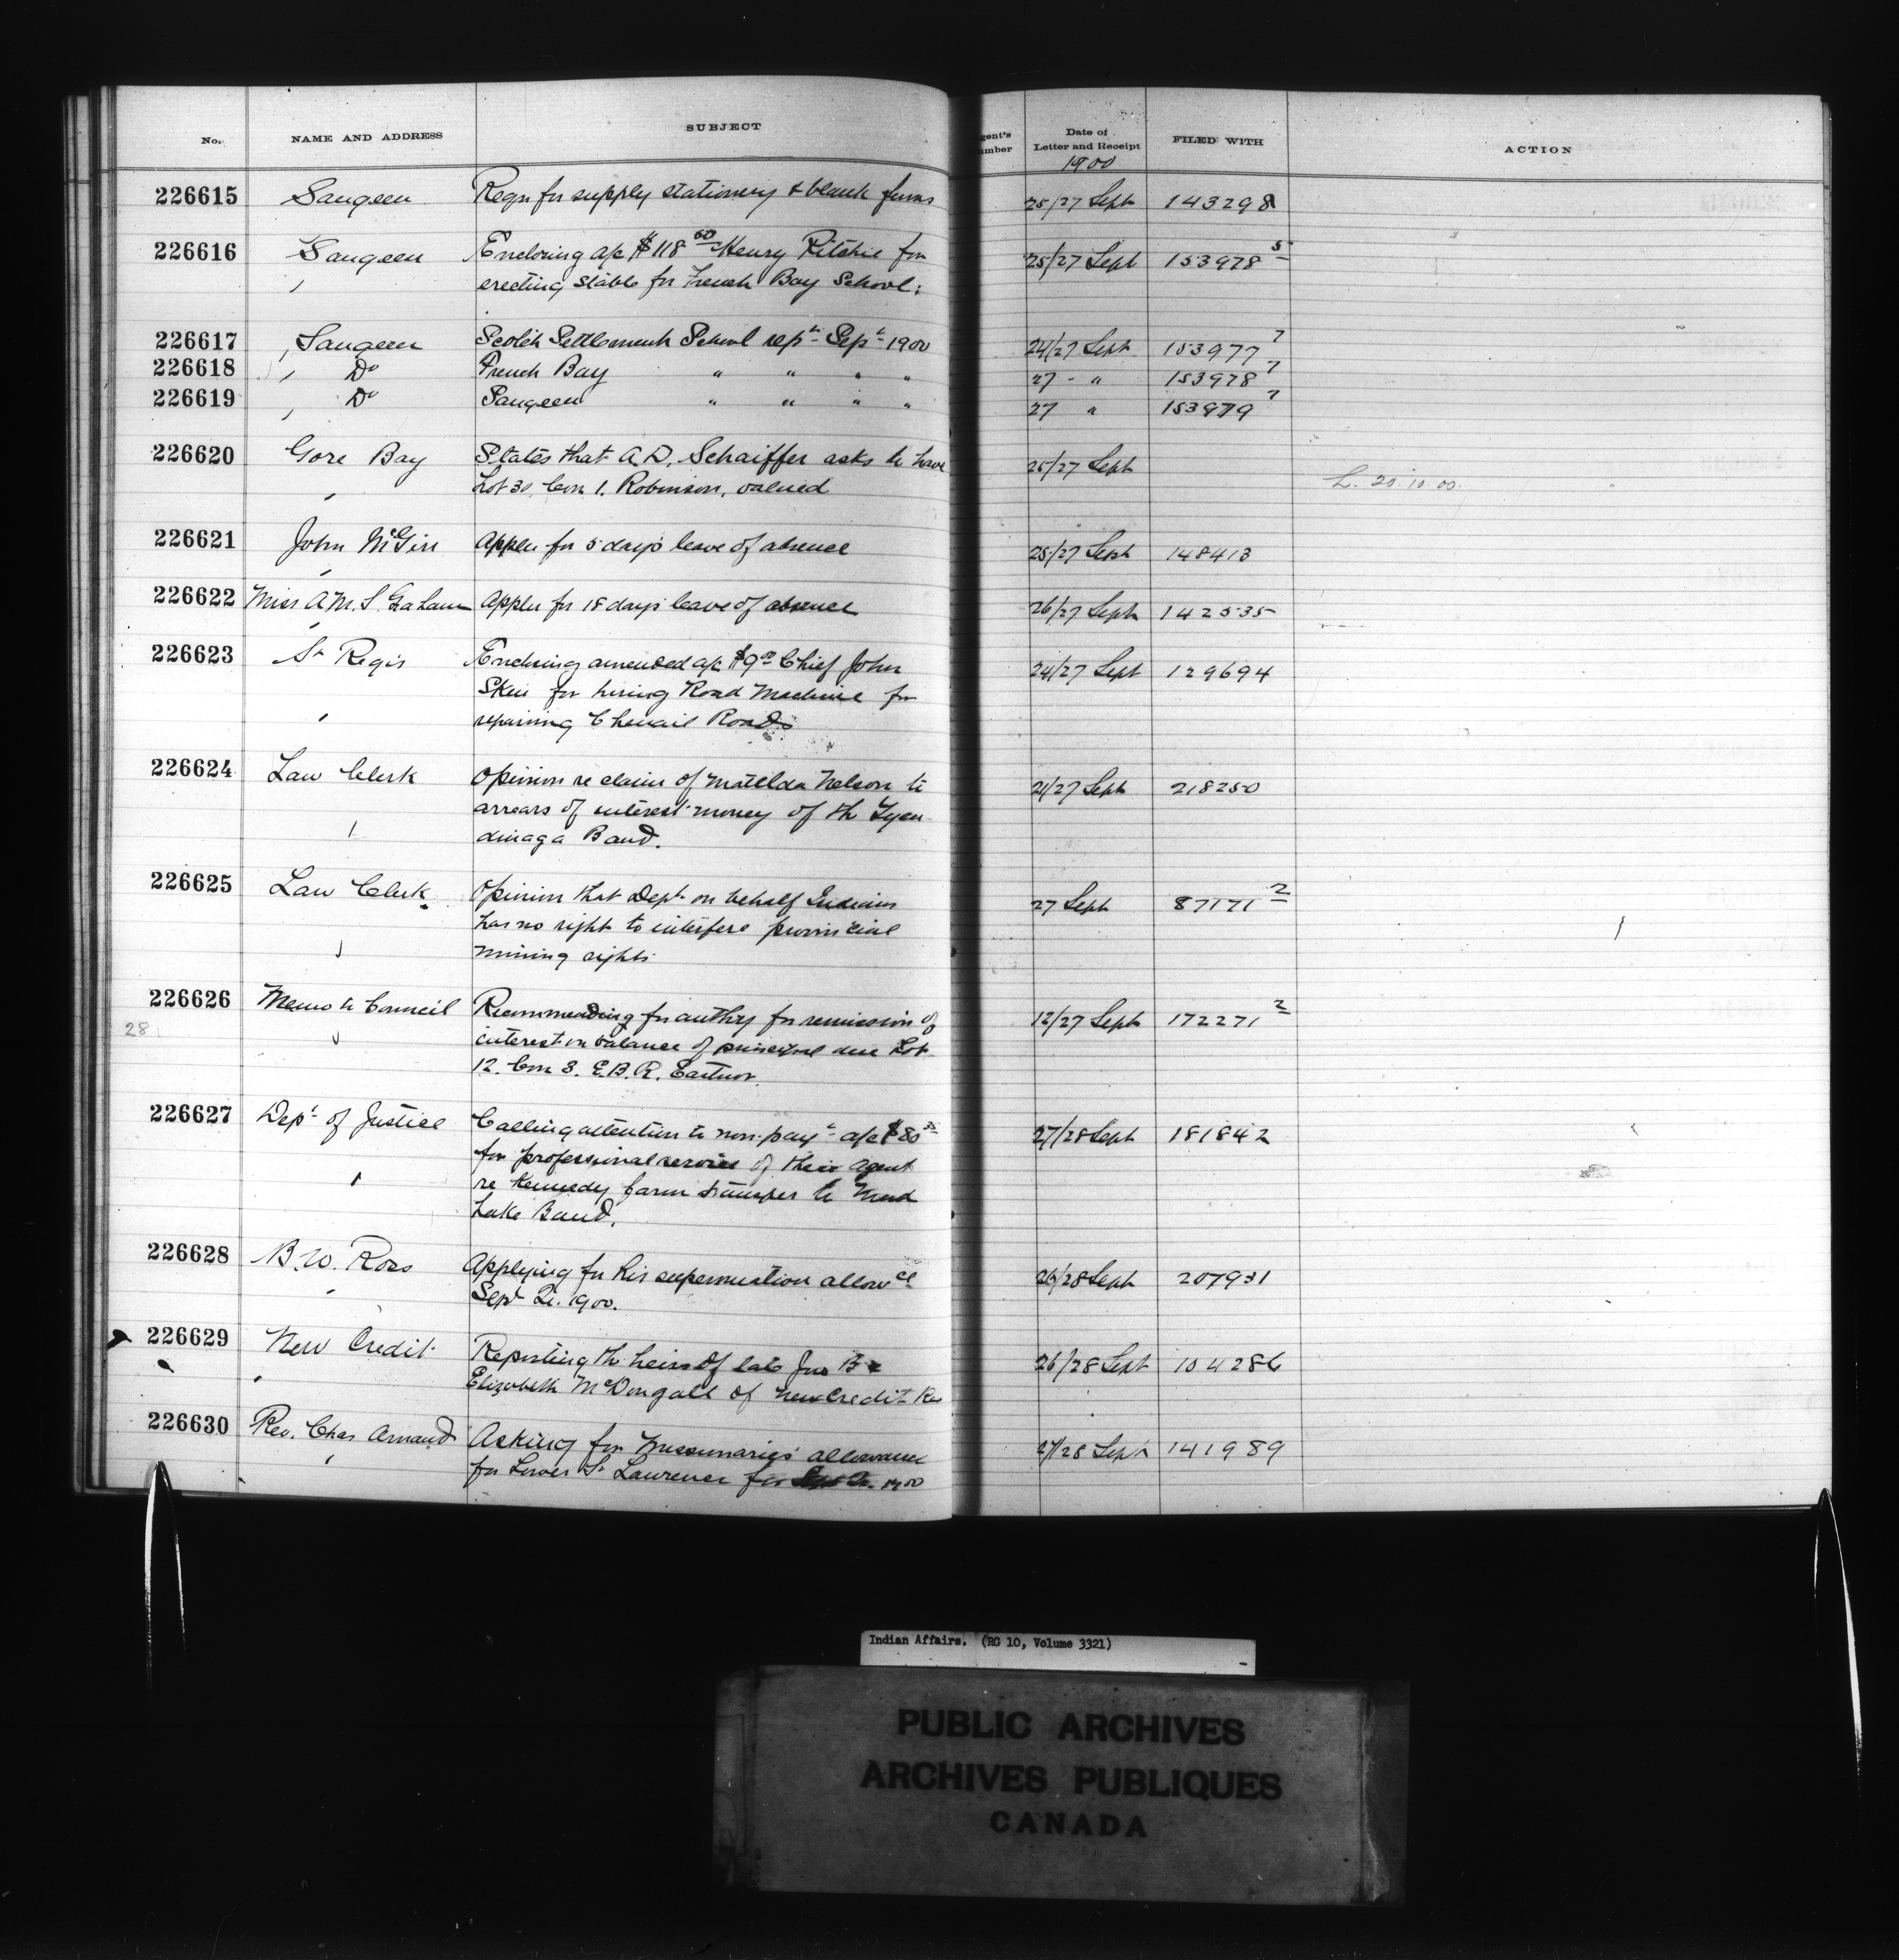 No. NAME AND ADDRESS SUBJECT gent's umber Date of Letter and Receipt FILED WITH ACTION
1900
226615 Saugeen Reqn for supply stationery & blank forms 25/27 Sept 143298
226616 Saugeen Enclosing a/c $118 60 Henry Ritchie for 25/27 Sept 153978 5
erecting stable for French Bay School.
226617 Saugeen Scotch Settlement School rept Sept 1900 24/27 Sept 153977 7
226618 Do French Bay " " " " 27 - " 153978 7
226619 Do Saugeen " " " " 27 " 153979 7
226620 Gore Bay States that A.D. Schaiffer asks to have 25/27 Sept
Lot 30, Con 1. Robinson, valued L. 20.10.00.
226621 John McGirr Applen for 5 days leave of absence 25/27 Sept 148413
226622 Miss A.M.S. Graham Applen for 18 days leave of absence 26/27 Sept 142535
226623 St Regis Enclosing amended a/c $9 00 Chief John 24/27 Sept 129694
for hiring Road Machine for
repairing Chenail Roads
226624 Law Clerk Opinion re claim of Matilda Nelson to 21/27 Sept 218250
arrears of interest money of th Tyen-
dinaga Band.
226625 Law Clerk Opinion that Dept on behalf Indians 27 Sept 87171 2
has no right to interfere provincial
mining rights
226626 Memo to Council Recommending for authy for remission of 12/27 Sept 172271 2
28 interest on balance of principal due Lot
12. Con 3. E.B.R. Eastnor.
226627 Dept of Justice Calling attention to non-payt a/c $80 27/28 Sept 181842
for professional services of their agent
re Kennedy farm transfer to Mud
Lake Band.
226628 B.W. Ross Applying for his superannuation allowce 26/28 Sept 207931
Sept Qr. 1900.
226629 New Credit Reporting th heirs of late Jno B & 26/28 Sept 104286
Elizabeth McDougall of New Credit Res
226630 Rev. Chas Arnaud Asking for Missionaries allowance 27/28 Sept 141989
for Lower St Lawrence for Sept Qr. 1900
Indian Affairs. (RG 10, Volume 3321)
PUBLIC ARCHIVES
ARCHIVES PUBLIQUES
CANADA